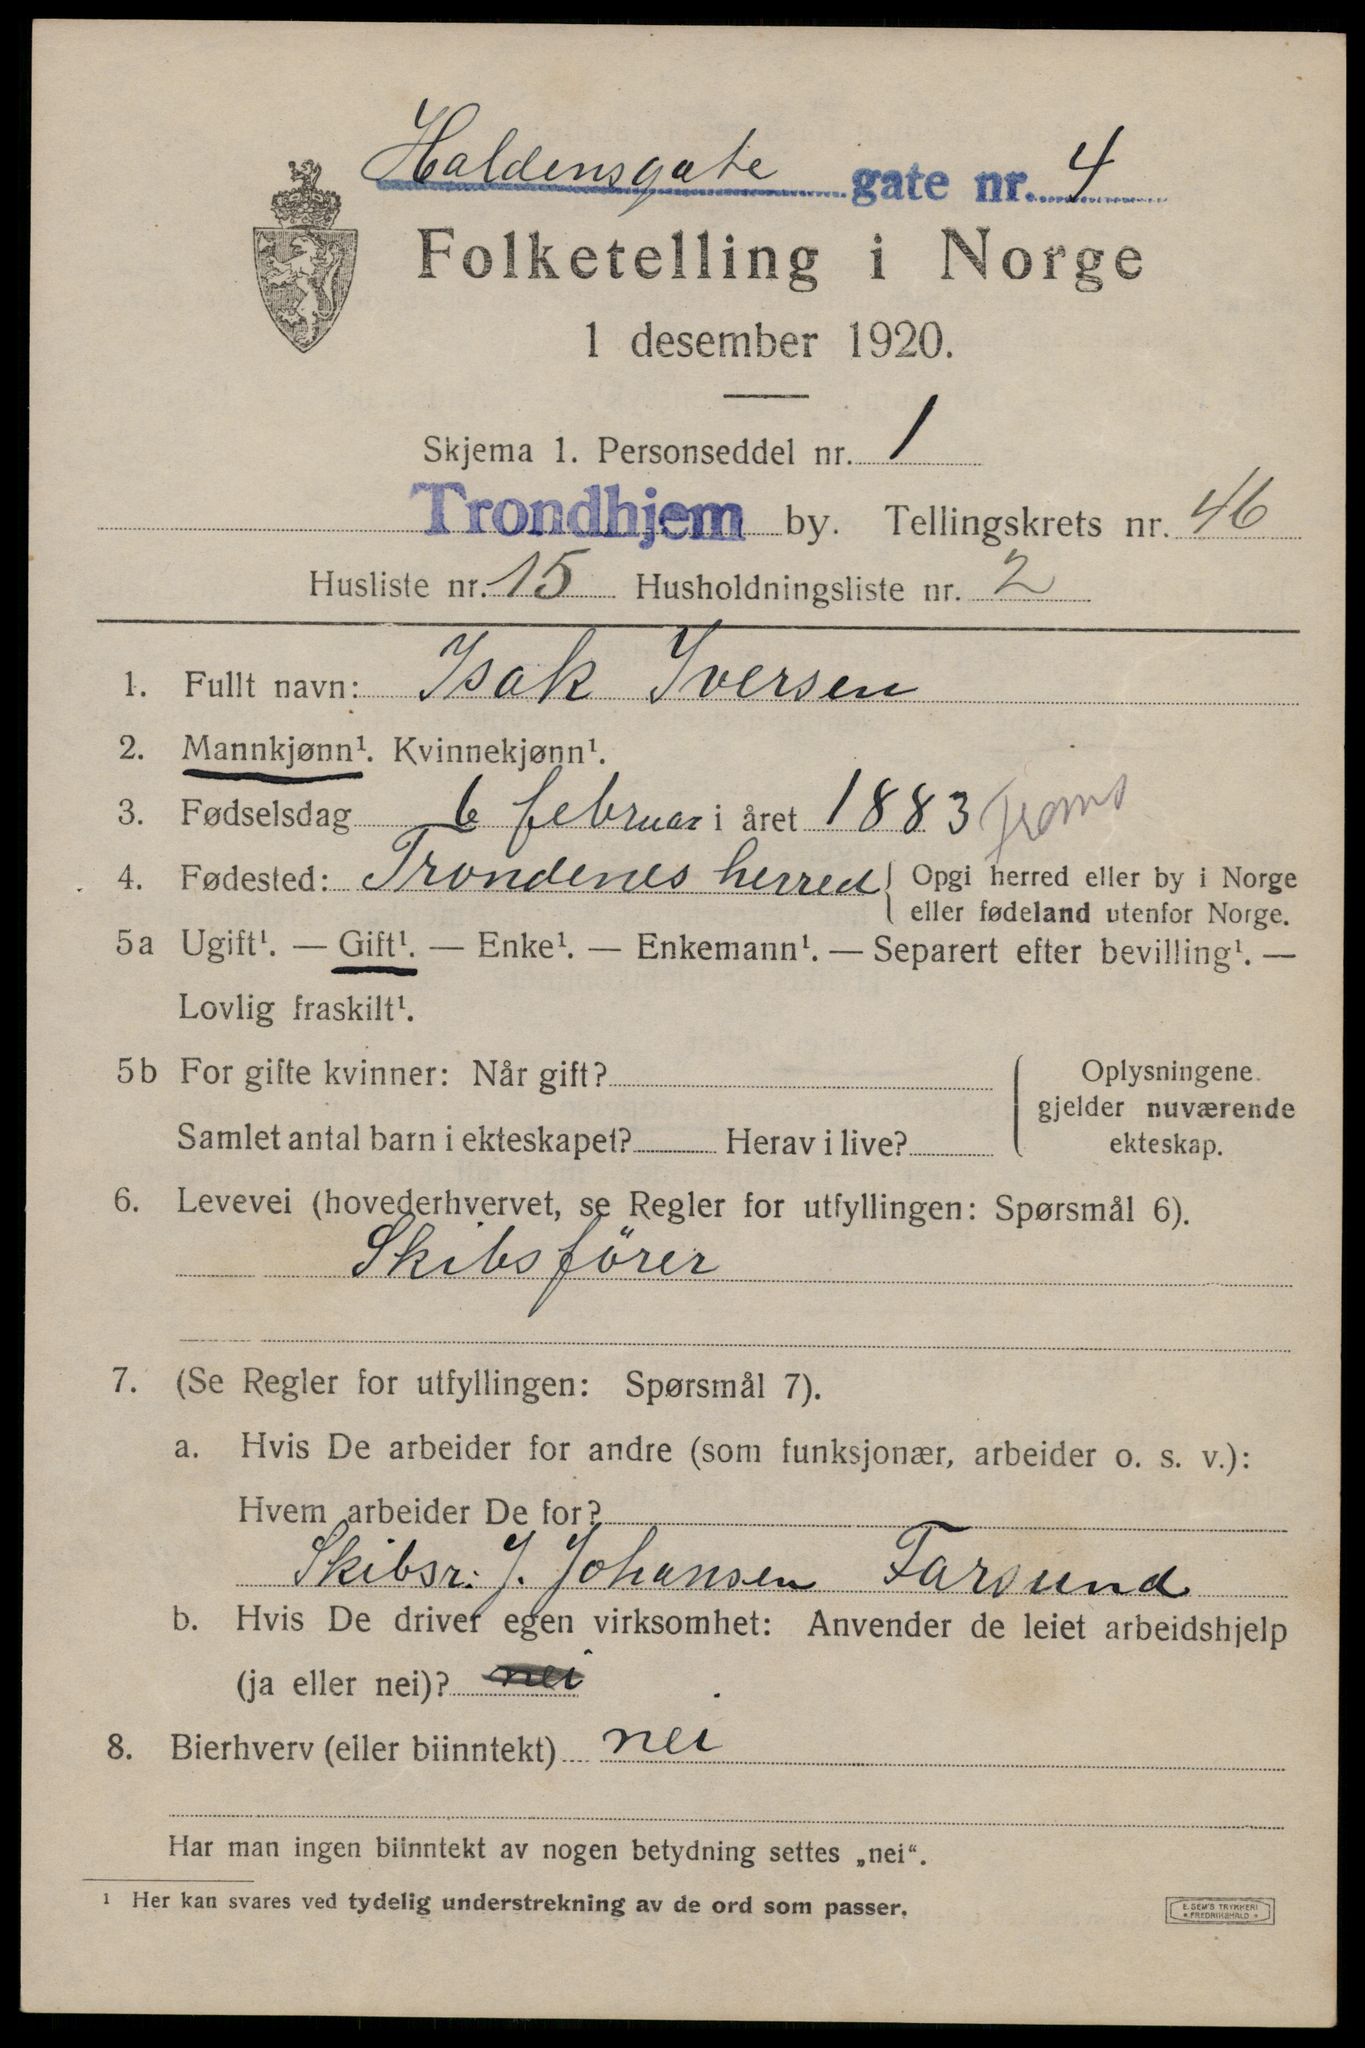 Haldensgate gate nr. 4
Folketelling i Norge
1 desember 1920.
Skjema 1. Personseddel nr. 1
Trondhjem by. Tellingskrets nr. 46
Husliste nr. 15 Husholdningsliste nr. 2
1. Fullt navn: Isak Iversen
2. Mannkjønn¹. Kvinnekjønn¹.
3. Fødselsdag 6 februar i året 1883 Troms
4. Fødested: Trondenes herred { Opgi herred eller by i Norge
eller fødeland utenfor Norge.
5a Ugift¹. — Gift¹. — Enke¹. — Enkemann¹. — Separert efter bevilling¹. —
Lovlig fraskilt¹.
5b For gifte kvinner: Når gift?
Samlet antal barn i ekteskapet? Herav i live?
Oplysningene
gjelder nuværende
ekteskap.
6. Levevei (hovederhvervet, se Regler for utfyllingen: Spørsmål 6).
Skibsförer
7. (Se Regler for utfyllingen: Spørsmål 7).
a. Hvis De arbeider for andre (som funksjonær, arbeider o. s. v.):
Hvem arbeider De for?
Skibsr. J. Johansen Farsund
b. Hvis De driver egen virksomhet: Anvender de leiet arbeidshjelp
(ja eller nei)? nei
8. Bierhverv (eller biinntekt) nei
Har man ingen biinntekt av nogen betydning settes „nei“.
¹ Her kan svares ved tydelig understrekning av de ord som passer.
E. SEM'S TRYKKERI
* FREDRIKSHALD *